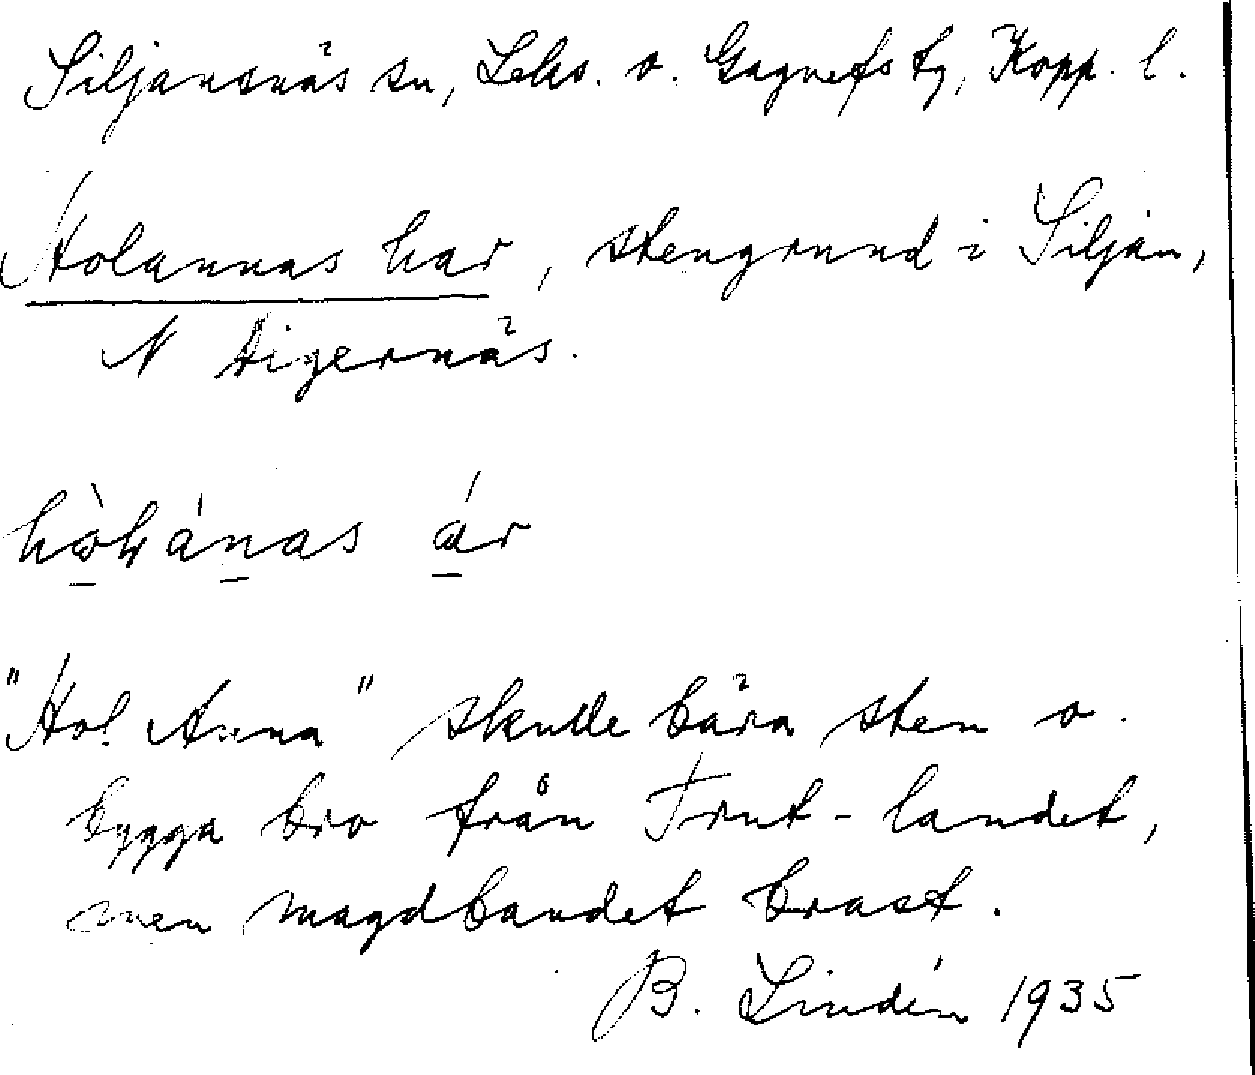 Siljansnäs sn, Leks. o. Gagnefs tg, Kopp. l.
Holannas har, stengrund i Siljan,
N Digernäs.
"Hol Anna" skulle bära sten o.
bygga bro från Trut-landet,
men magdbandet brast.
B. Lindén 1935